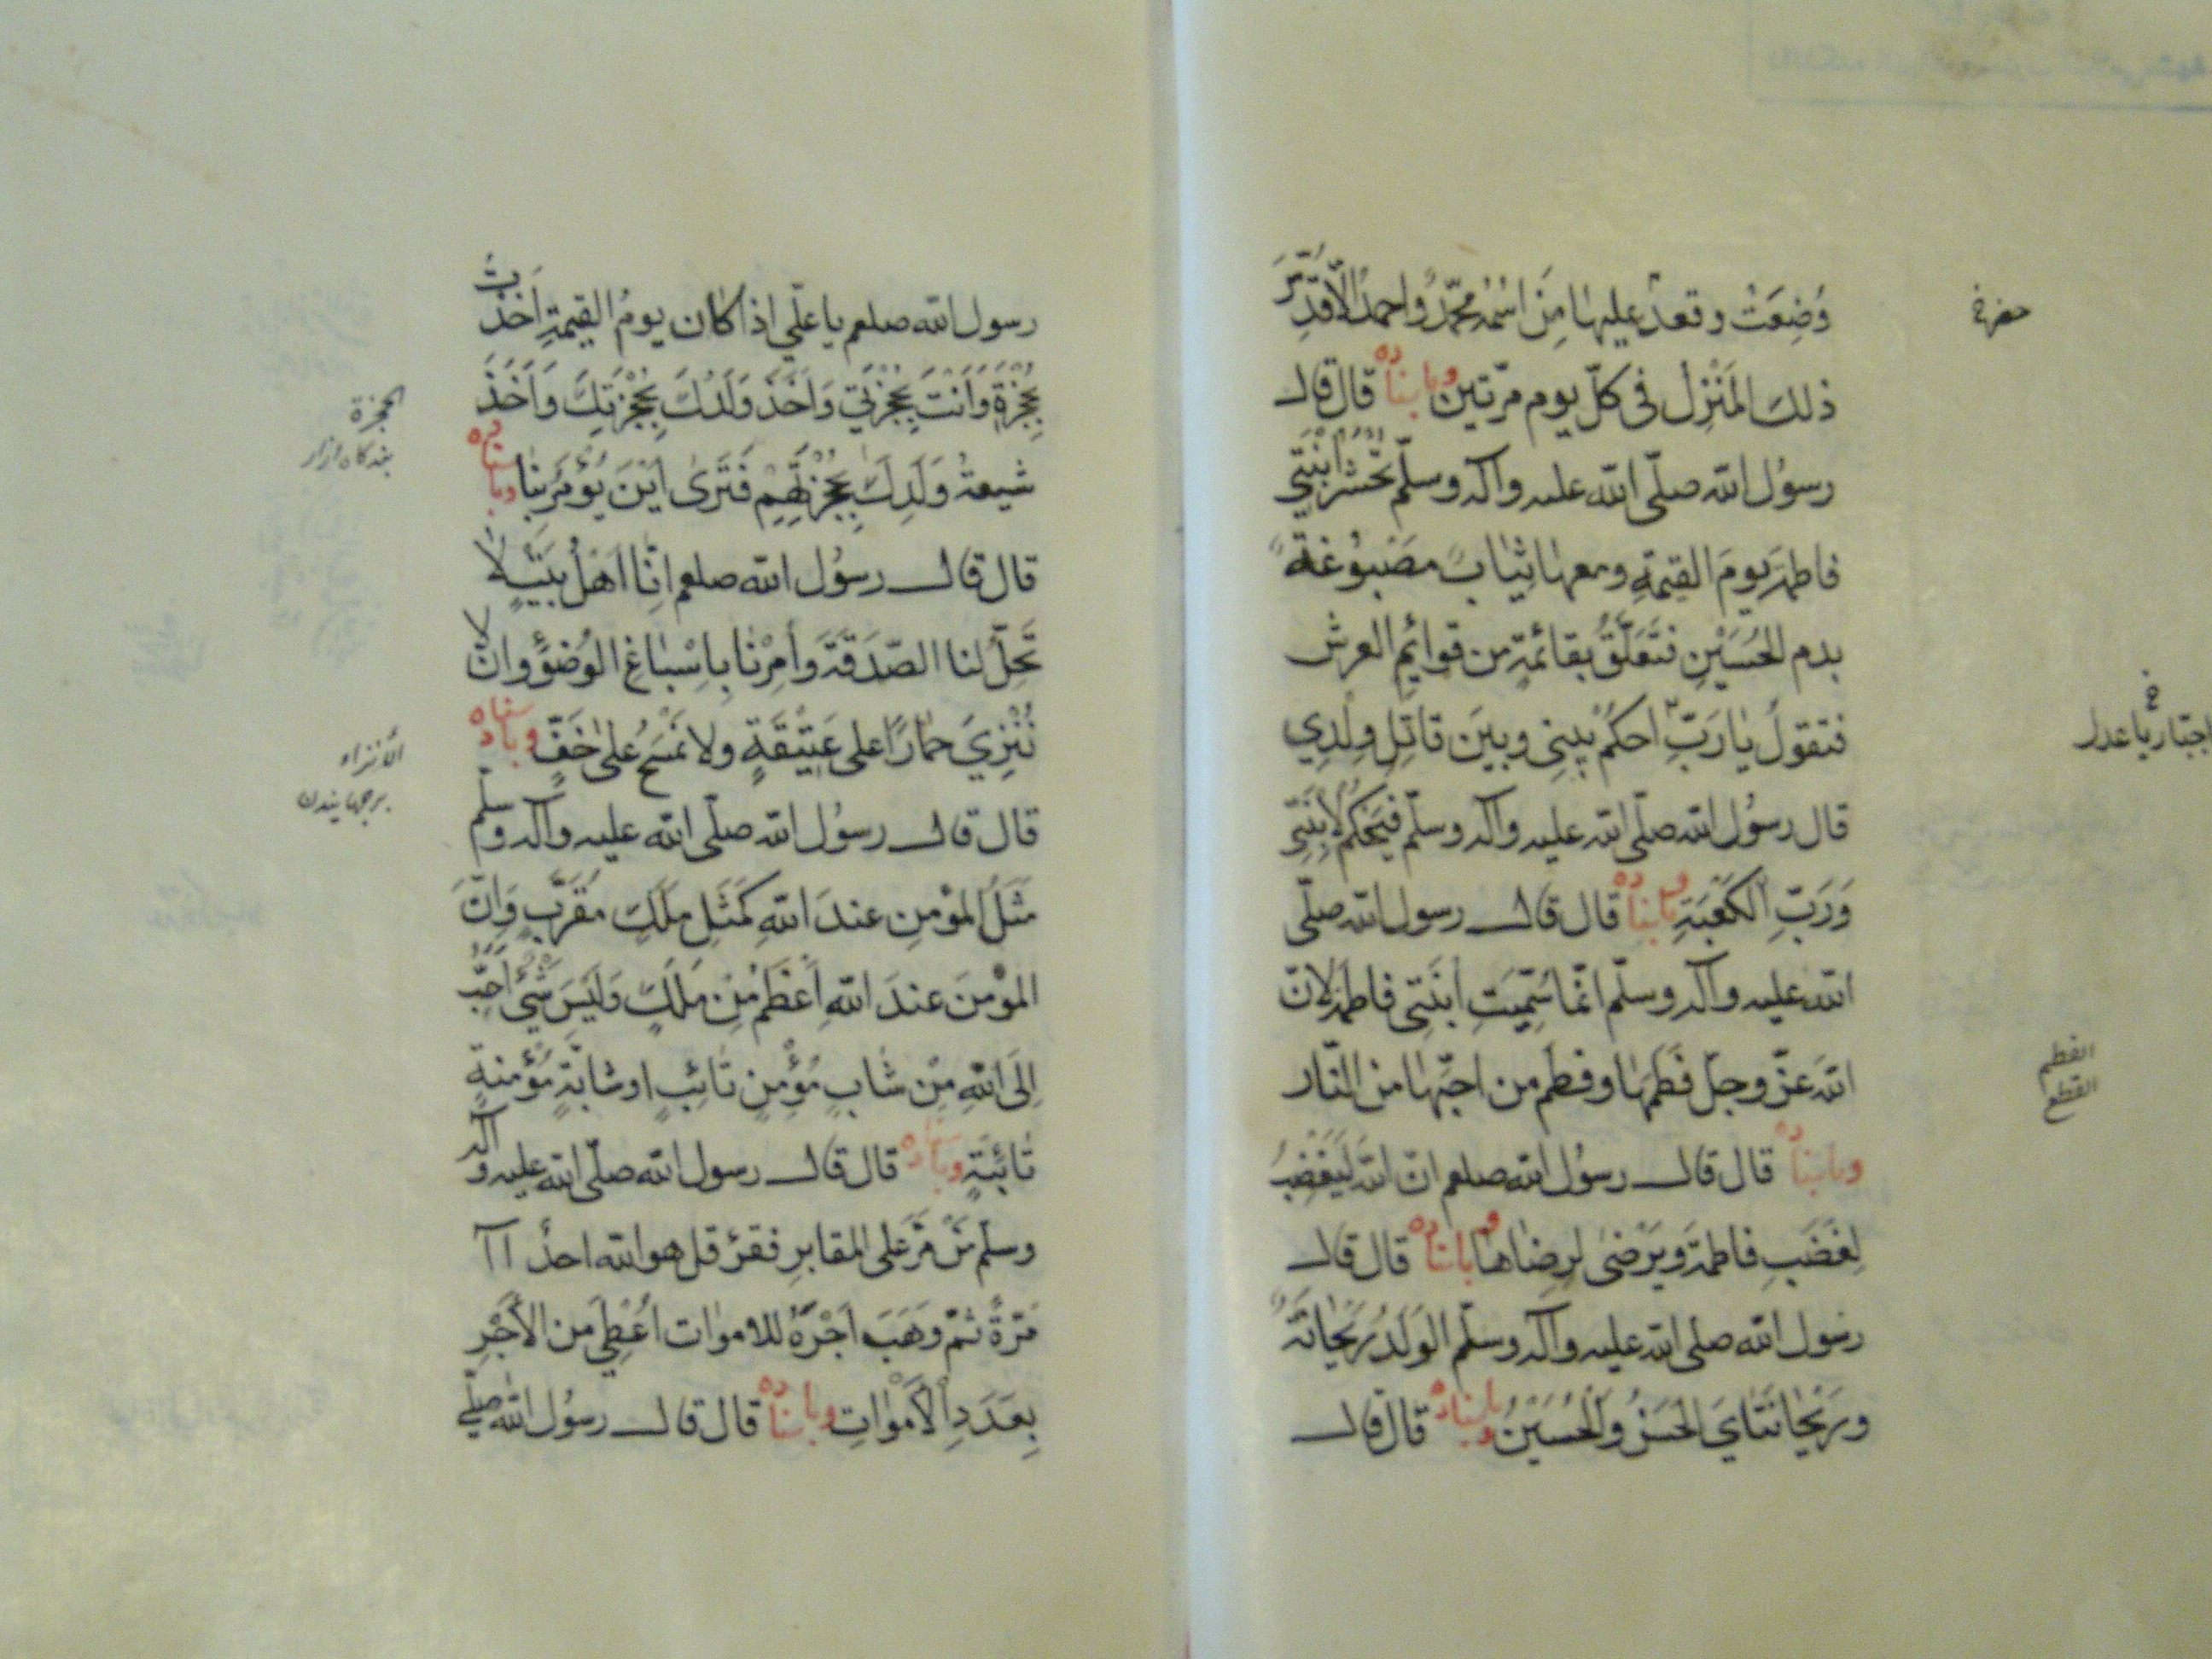 وُضِعَتْ وقعد عليها مَن اسْمُهُ محمّدٌ واحمدُ الّا قُدِّسَ
ذلك المَنْزِل فى كلّ يوم مرّتين وباسناده قال قال
رسُول الله صلّى الله عليه وآله وسلّم تُحْشَرُ ابْنَتِي
فاطمة يومَ القيمةِ ومعها ثيابٌ مصْبُوغَةٌ
بدم الحُسَيْنِ فتَتَعَلّقُ بقائمةٍ من قوائمِ العرش
فتقولُ يا رَبِّ احكُمْ بينِى وبينَ قاتِلِ ولْدِي
قال رسُول الله صلّى الله عليه وآله وسلّم فيَحْكُم لِابْنَتِي
وَرَبِّ الكَعْبَةِ وباسناده قال قال رسول الله صلّى
الله عليه وآله وسلّم انّما سُمِّيَتِ ابْنَتِى فاطمة لانّ
الله عزّ وجلّ فَطَمَها وفطم من احبّها من النّار
وباسناده قال قال رسُول الله صلعم انّ الله لَيَغْضَبُ
لِغَضَبِ فاطمة ويَرْضى لِرِضاها وباسناده قال قال
رسُول الله صلى الله عليه وآله وسلّم الوَلَدُ رَيْحانَةٌ
ورَيْحانَتَايَ الحَسَنُ والْحُسَيْنُ وباسناده قال قال
الفطم
القطع
رسول الله صلعم يا علّي اذا كان يومُ القيمةِ اَخَذْتُ
بِحُجْزَةِ وَاَنْتَ بِحُجْزَتِي وَاَخَذَ وَلَدُكَ بِحُجْزَتِكَ وَاَخَذَ
شيعةُ وَلَدِكَ بِحُجْزَتِهِم فَتَرىٰ اَيْنَ يُؤْمَرُ بِنا وباسناده
قال قال رسُول الله صلعم انّا اهلُ بَيْتٍ لا
تَحِلّ لنا الصّدَقَةَ وأُمِرْنا باِسْباغ الوُضوءِ وان لا
نُنْزِيَ حمارًا على عَتِيْقَةٍ ولا نَمْسَحُ على خُفٍّ وباسناده
قال قال رسُول الله صلّى الله عليه وآله وسلّم
مَثَلُ المؤمنِ عندَ اللهِ كَمَثَلِ ملَكٍ مُقَرَّبٍ وَاِنَّ
المؤمنَ عندَ اللهِ اَعْظَمُ مِنْ مَلَكٍ وَلَيْسَ شَئٌ اَحَبَّ
اِلَى اللهِ مِنْ شابٍ مُؤْمِنٍ تائِبٍ او شابّةٍ مُؤْمنةٍ
تائبَةٍ وباسناده قال قال رسول الله صلّى الله عليه وآله
وسلّم مَنْ مَرَّ على المقابرِ فقرئ قل هو الله احدٌ ١١
مَرّةً ثمّ وَهَبَ اَجْرَهُ للاموات اُعْطِيَ من الاَجْرِ
بِعَدَدِ الْاَمْوٰاتِ وباسناده قال قال رسُول الله صلّى
الحجزة
الأنزاء